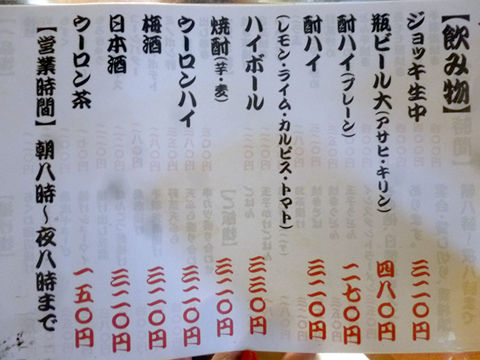 【飲み物】
ジョッキ生中 三二〇円
瓶ビール大(アサヒ・キリン) 四八〇円
酎ハイ(プレーン) 二七〇円
酎ハイ 三二〇円
(レモン・ライム・カルピス・トマト)
ハイボール 三三〇円
焼酎(芋・麦) 三二〇円
ウーロンハイ 三二〇円
梅酒 三二〇円
日本酒 三二〇円
ウーロン茶 一五〇円
【営業時間】 朝八時~夜八時まで